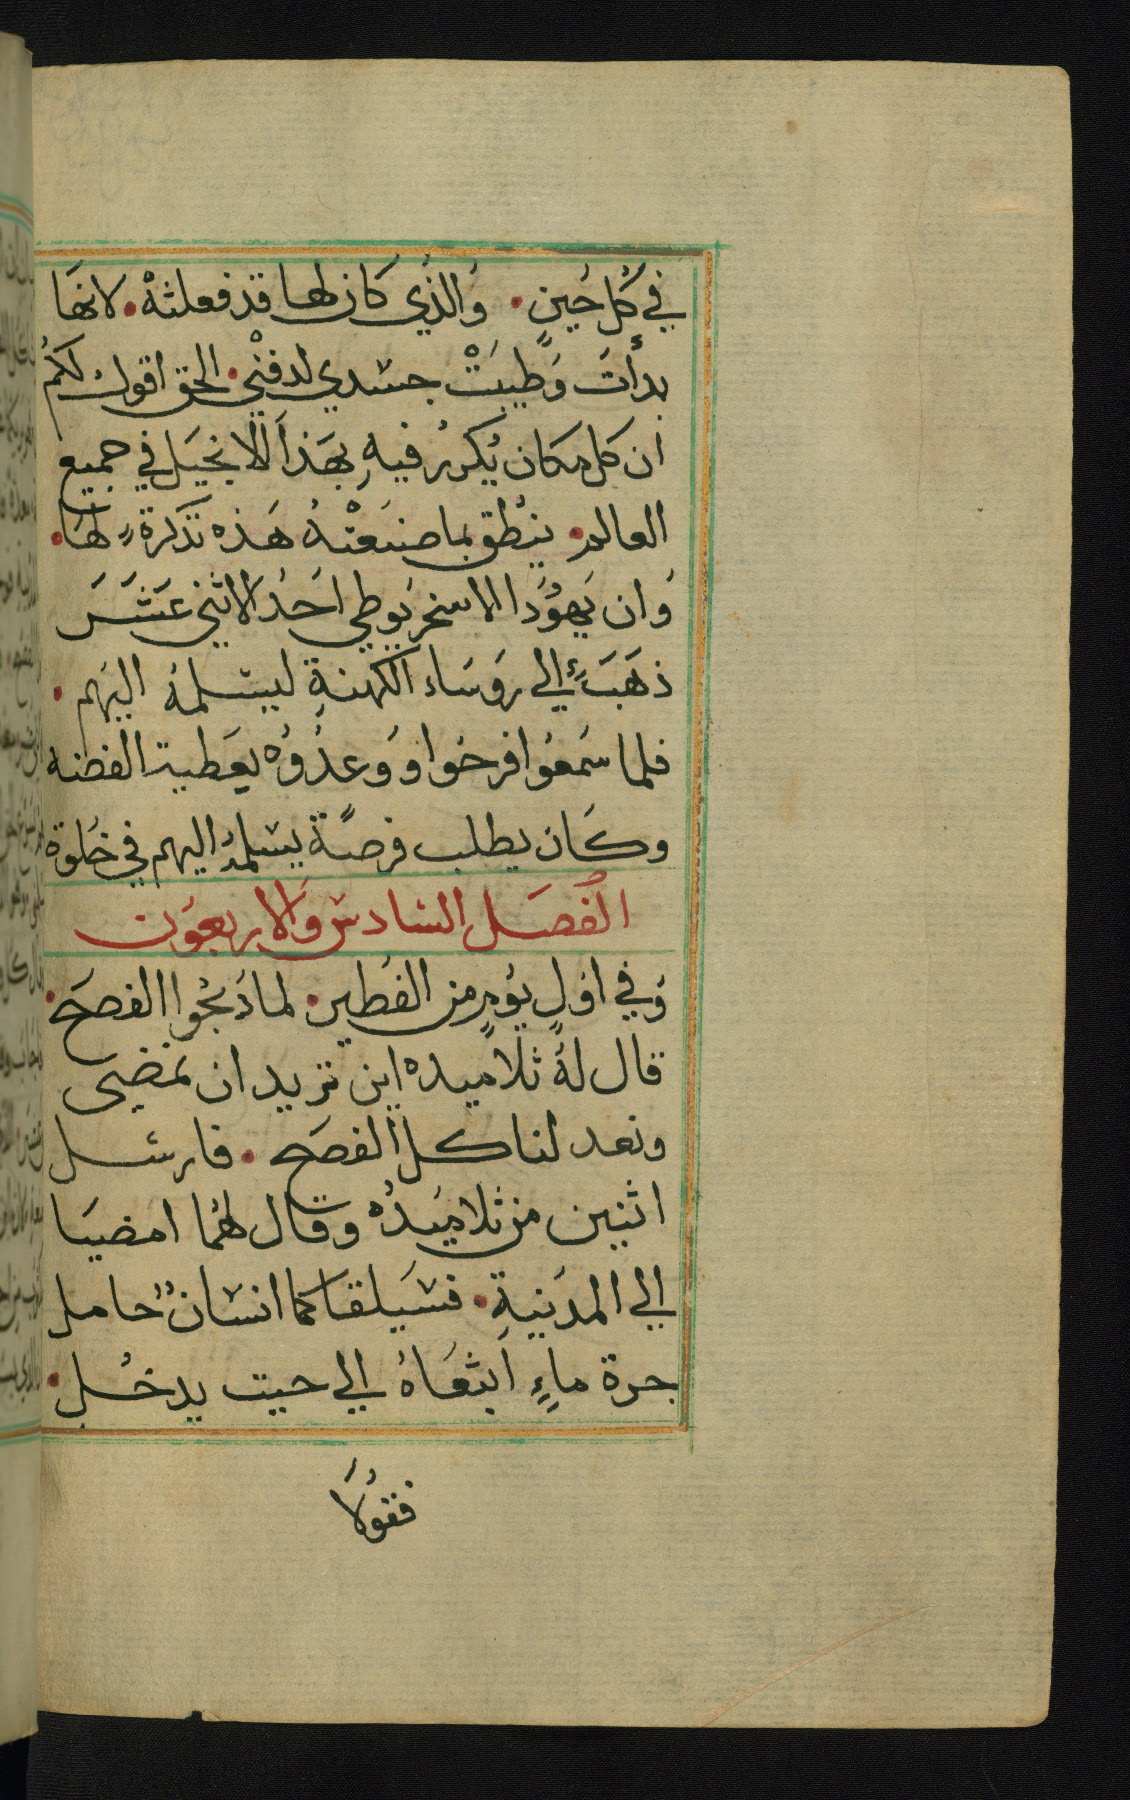 في كُل حُين۰ وُالذُي كَان لها قد فعلتهْ۰ لانهَا
بدأتَ وَطيبَتْ جسدي لدفنْي۰ الحق اقول لكُم
ان كل مكان يُكرزُ فيهِ بهَذا الانجيَل في جميع
العالم۰ ينطق بما صنعَتْهُ هَذه تذكرة لهَا۰
وَان يَهوُدَا الاسخريوطي احَدُ الاثني عَشَرَ
ذهَبَ إلي روسَاء الكهنةِ ليسلمهُ اليهم۰
فلما سَمعُوا فرحَوا ووَعدُوُه يعَطيه الفضه
وكَان يطلب فرصًة يسلمهُ اليهم في خَلوة
الفصَل السَادس وَالاربعوَن
وَفي اوَل يوُم من الفَطير۰ لما ذبحُوا الفصَح۰
قال لهُ تلاميده اين تريد ان نمضي
ونعد لنا كل الفصَح۰ فارسل
اثنين من تلاميَدهُ وقال لهُما امضيَا
الي المدَينةِ۰ فسَيلقاكما انسَانٌ حامل
جرة ماءٍ اتبعَاهُ الي حيت يدخُل۰
فقولاَ